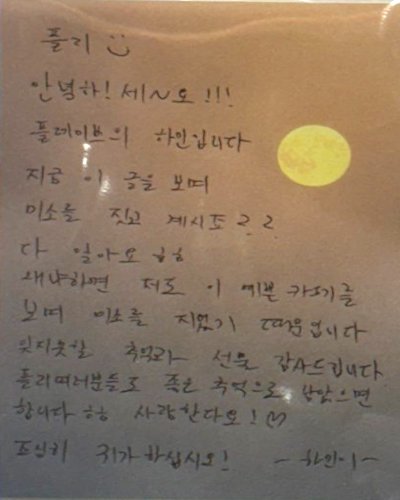 플리
안녕하! 세~요!!!
플레이브의 하민입니다
지금 이 글을 보며
미소를 짓고 계시죠??
다 알아요 ㅎㅎ
왜냐하면 저도 이 예쁜 카페를
보며 미소를 지었기 때문입니다
잊지못할 추억과 선물 감사드립니다
플리여러분들도 좋은 추억으로 남았으면
합니다 ㅎㅎ 사랑한다요!♡
조심히 귀가하십시오! -하민이-